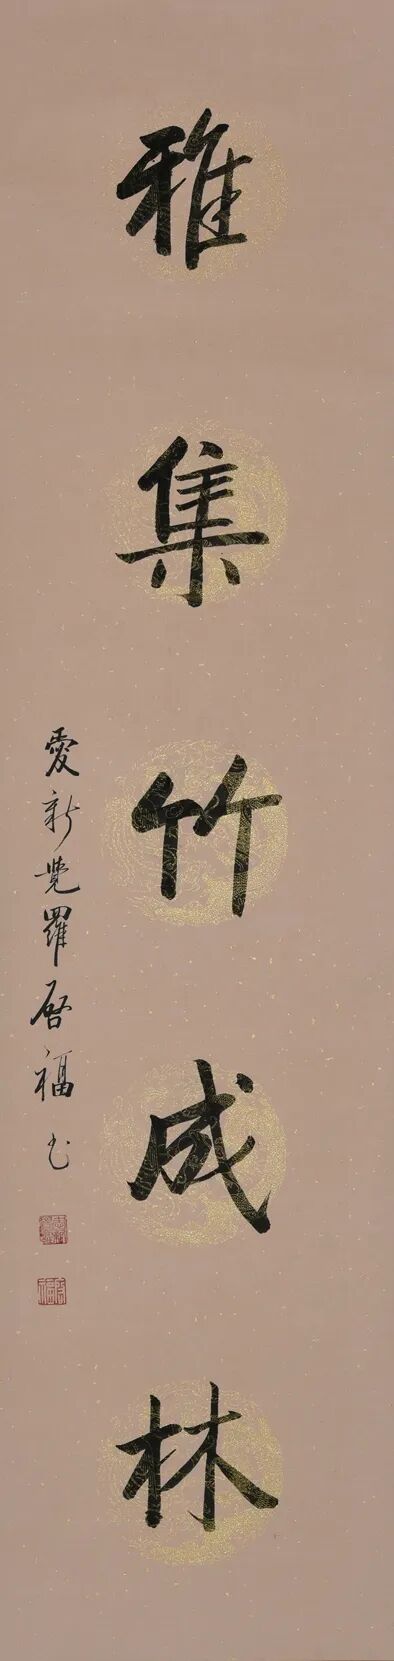 雅集竹成林
愛新覺羅啓福书